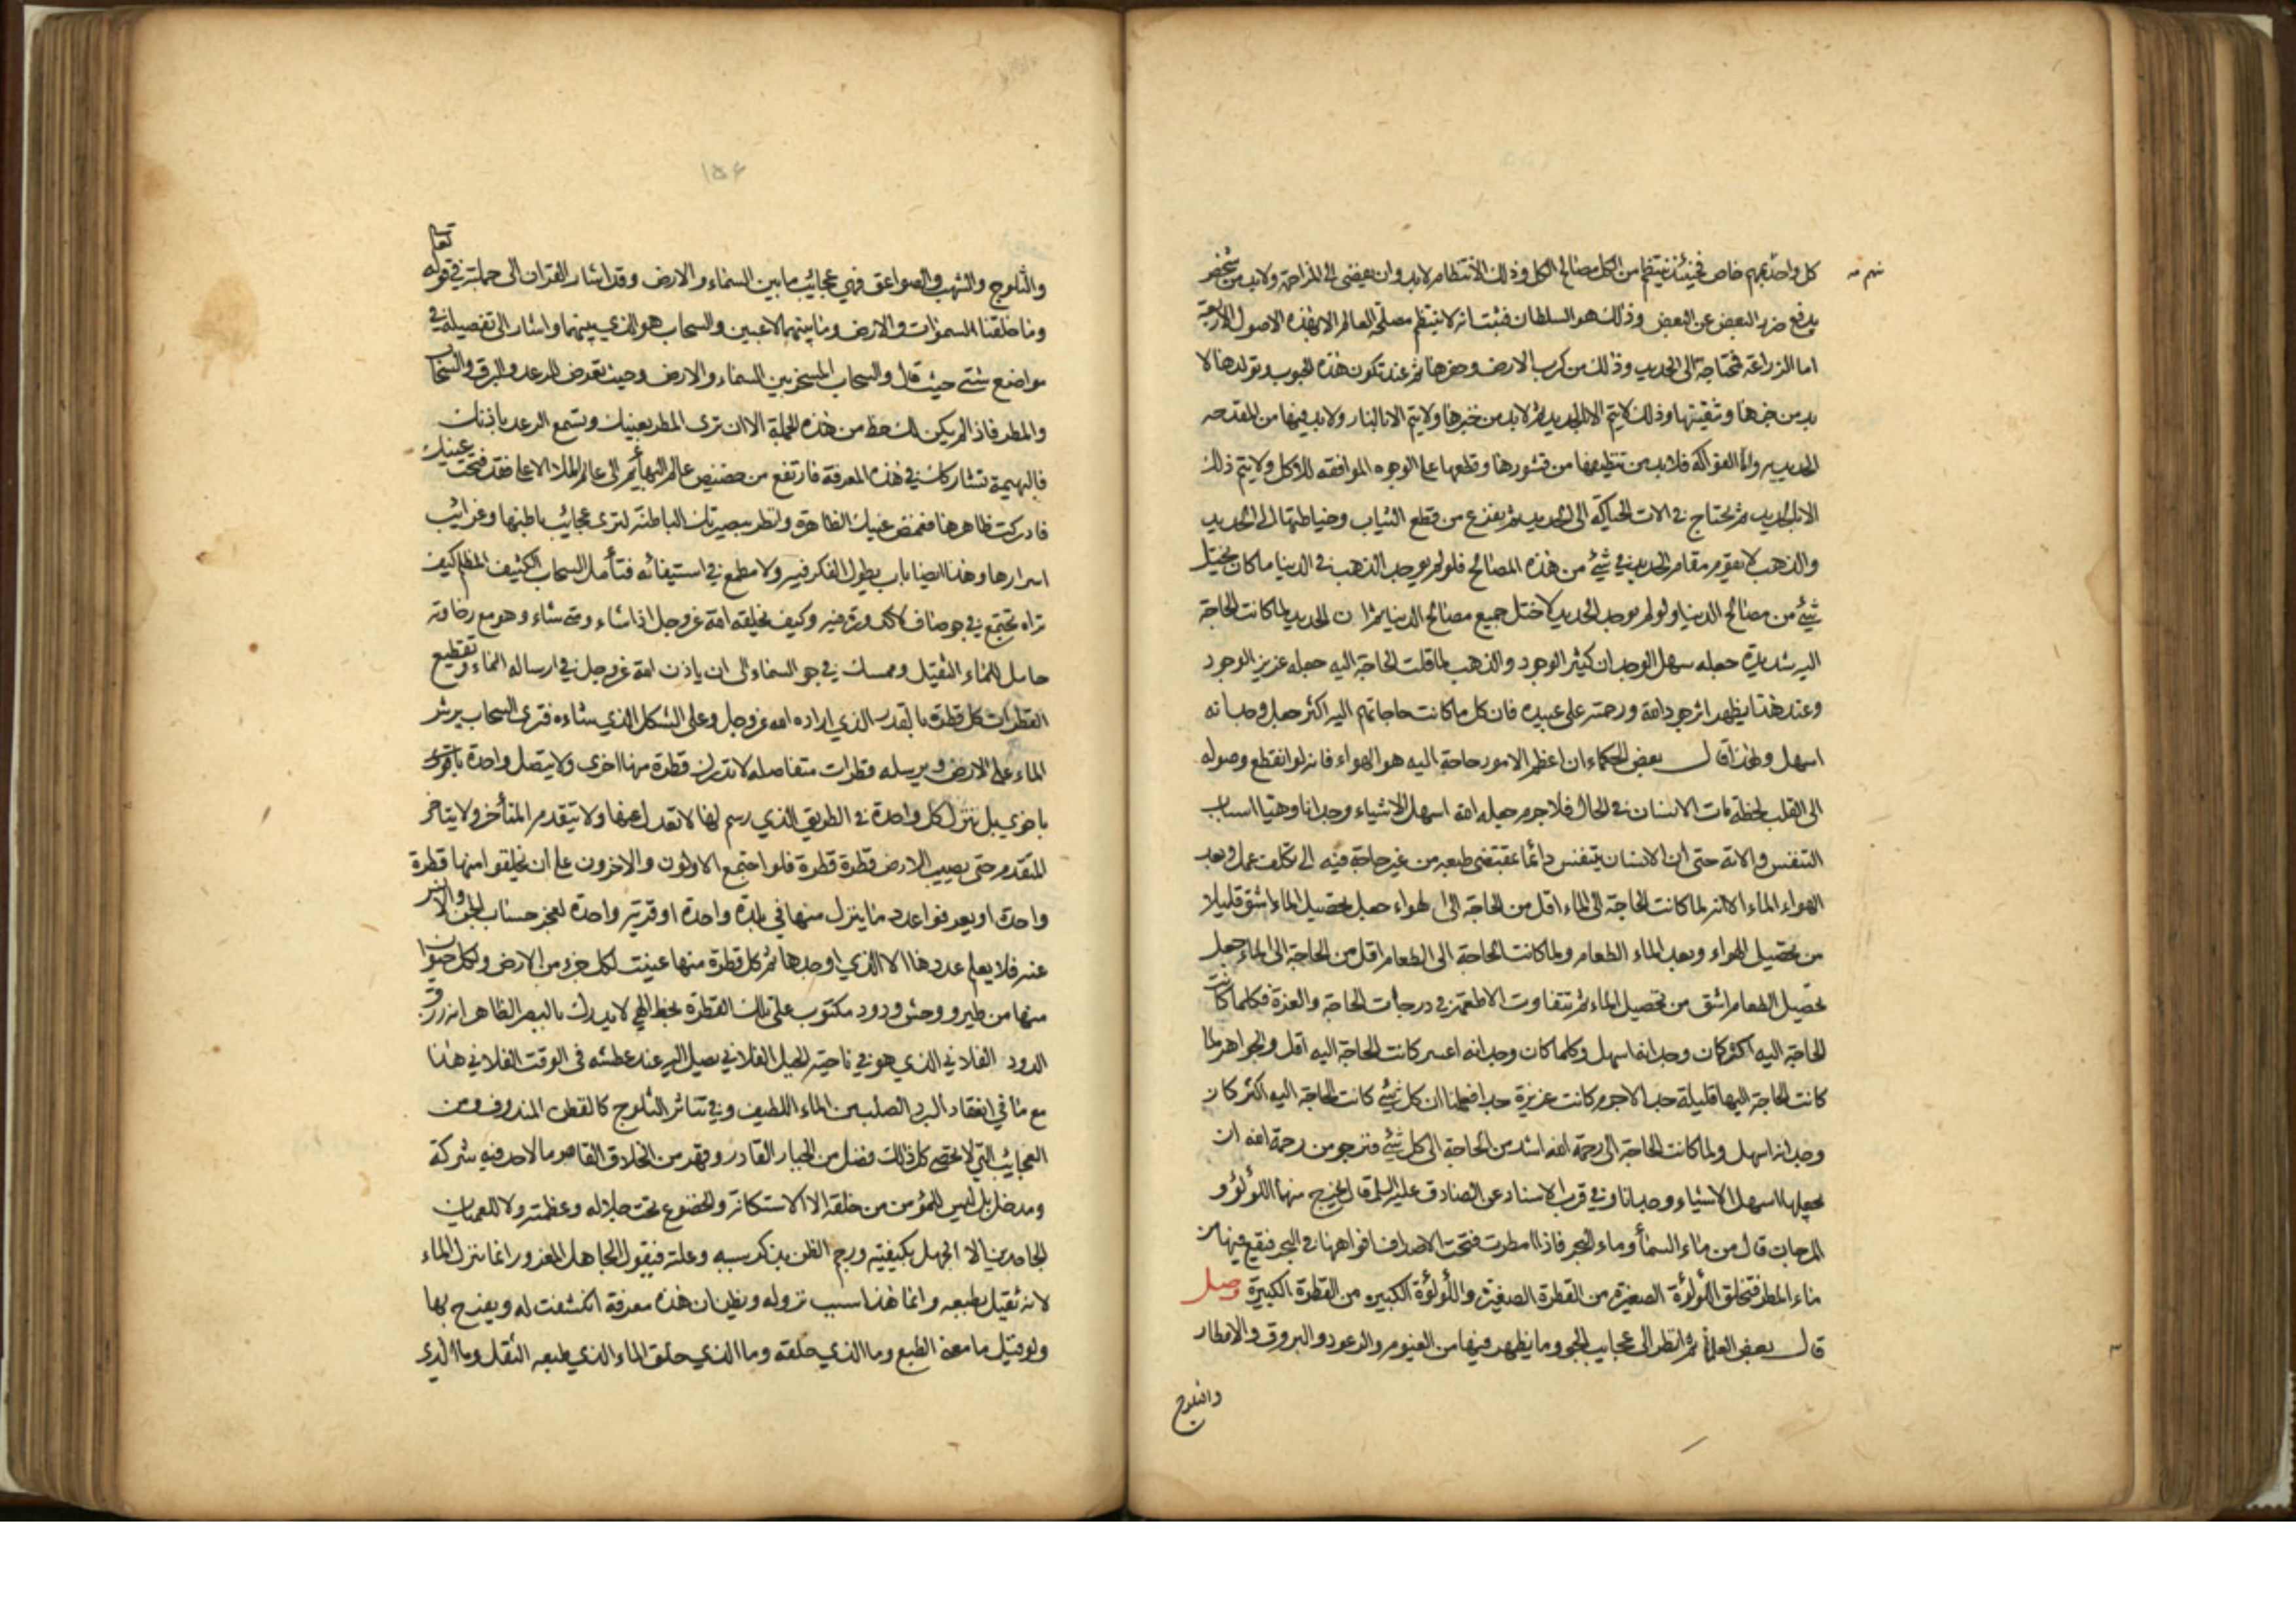 كل واحد بمهم خاص فحينئذ ينتظم من الكل مصالح الكل وذلك الانتظام لابد وان يفضى الى المزاحمة ولابد من شخص
منهم
يدفع ضرر البعض عن البعض وذلك هو السلطان فثبت انه لا ينتظم مصلحة العالم الا بهذه الاصول الاربعة
اما الزراعة فمحتاجة الى الحديد وذلك من كرب الارض وحفرها ثم عند تكون هذه الحبوب وتولدها لا
بد من خبزها وتنقيتها وذلك لا يتم الا بالحديد ثم لابد من خبزها ولا يتم الا بالنار ولابد فيها من المقدحه
الحديديه واما الفواكه فلابد من تنظيفها من قشورها وقطعها على الوجوه الموافقه للاكل ولا يتم ذلك
الا بالحديد ثم يحتاج في الات الحياكة الى الحديد ثم يفزع من قطع الثياب وخياطتها الى الحديد
والذهب لا يقوم مقام الحديد في شئ من هذه المصالح فلو لم يوجد الذهب في الدنيا ما كان يختل
شئ من مصالح الدنيا ولو لم يوجد الحديد لاختل جميع مصالح الدنيا ثم ان الحديد لما كانت الحاجة
اليه شديدة جعله سهل الوجدان كثير الوجود والذهب لما قلت الحاجة اليه جعله عزيز الوجود
وعند هذا يظهر اثر جود الله ورحمته على عبيده فان كل ما كانت حاجاتهم اليه اكثر جعل وجدانه
اسهل ولهذا قال بعض الحكماء ان اعظم الامور حاجة اليه هو الهواء فانه لو انقطع وصوله
الى القلب لحظة مات الانسان في الحال فلاجرم جعله الله اسهل الاشياء وجدانا وهيأ اسباب
التنفس والاته حتى ان الانسان يتنفس دائما بمقتضى طبعه من غير حاجة فيه الى تكلف عمل وبعد
الهواء الماء الا انه لما كانت الحاجة الى الماء اقل من الحاجة الى الهواء جعل تحصيل الماء اشق قليلا
من تحصيل الهواء وبعد الماء الطعام ولما كانت الحاجة الى الطعام اقل من الحاجة الى الماء جعل
تحصيل الطعام اشق من تحصيل الماء ثم تتفاوت الاطعمة في درجات الحاجة والعزة فكلما كانت
الحاجة اليه اكثر كان وجدانه اسهل وكلما كان وجدانه اعسر كانت الحاجة اليه اقل والجواهر لما
كانت الحاجة اليها قليلة جدا لاجرم كانت عزيزة جدا فعلمنا ان كل شئ كانت الحاجة اليه اكثر كان
وجدانه اسهل ولما كانت الحاجة الى رحمة الله اشد من الحاجة الى كل شئ فنرجو من رحمة الله ان
يجعلها اسهل الاشياء وجدانا وفي قرب الاسناد عن الصادق عليه السلم قال يخرج منها اللؤلؤ و
المرجان قال من ماء السماء وماء البحر فاذا امطرت فتحت الاصداف افواهها في البحر فيقع فيها من
ماء المطر فتخلق اللؤلؤة الصغيرة من القطرة الصغيرة واللؤلؤة الكبيره من القطرة الكبيرة وصل
قال بعض العلماء ثم انظر الى عجايب الجو وما يظهر فيها من الغيوم والرعود والبروق والامطار
والثلوج
۱۵۶
والثلوج والشهب والصواعق فهي عجائب ما بين السماء والارض وقد اشار القران الى جملته في قوله تعا
وما خلقنا السموات والارض وما بينهما لاعبين والسحاب هو الذي بينهما واشار الى تفصيله في
مواضع شتى حيث قال والسحاب المسخر بين السماء والارض وحيث تعرض للرعد والبرق والسحاب
والمطر فاذا لم يكن لك حظ من هذه الجملة الا ان ترى المطر بعينيك وتسمع الرعد باذنك
فالبهيمة تشاركك في هذه المعرفة فارتفع من حضيض عالم البهائم الى عالم الملأ الاعلى فقد فتحت عينيك
فادركت ظاهرها فغمض عينيك الظاهرة وانظر ببصيرتك الباطنة لترى عجائب باطنها وغرائب
اسرارها وهذا ايضا باب يطول الفكر فيه ولا مطمع في استيفائه فتأمل السحاب الكثيف المظلم كيف
تراه تجتمع في جو صاف لا كدورة فيه وكيف يخلقه الله عز وجل اذا شاء ومتى شاء وهو مع رخاوته
حامل للماء الثقيل وممسك في جو السماء الى ان ياذن الله عز وجل في ارساله الماء وتقطيع
القطرات كل قطرة بالقدر الذي اراده الله عز وجل وعلى الشكل الذي شاءه فترى السحاب يرش
الماء على الارض ويرسله قطرات متفاصله لا تدرك قطرة منها اخرى ولا يتصل واحدة
باخرى بل تنزل كل واحدة في الطريق الذي رسم لها لا تعدل عنها ولا يتقدم المتأخر ولا يتاخر
المتقدم حتى يصيب الارض قطرة قطرة فلو اجتمع الاولون والاخرون على ان يخلقوا منها قطرة
واحدة او يعرفوا عدد ما ينزل منها في بلدة واحدة او قرية واحدة لعجز حساب الجن والانس
عنه فلا يعلم عددها الا الذي اوجدها ثم كل قطرة منها عينت لكل جزء من الارض ولكل حيوان
منها من طير ووحش ودود مكتوب على تلك القطرة بخط الهي لا يدرك بالبصر الظاهر انه رزق
الدود الفلاني الذي هو في ناحية الجبل الفلاني يصل اليه عند عطشه في الوقت الفلاني هذا
مع ما في انعقاد البرد الصلب من الماء اللطيف وفي تناثر الثلوج كالقطن المندوف ومن
العجائب التي لا تحصى كل ذلك فضل من الجبار القادر وقهر من الخلاق القاهر ما لاحد فيه شركة
ومدخل بل ليس للمؤمن من خلقه الا الاستكانة والخضوع تحت جلاله وعظمته ولا للعميان
الجاحدين الا الجهل بكيفيته ورجم الظن بذكر سببه وعلته فيقول الجاهل المغرور انما ينزل الماء
لانه ثقيل بطبعه وانما هذا سبب نزوله ويظن ان هذه معرفة انكشفت له ويفرح بها
ولو قيل ما معنى الطبع وما الذي خلقه وما الذي خلق الماء الذي طبعه الثقل وما الذي